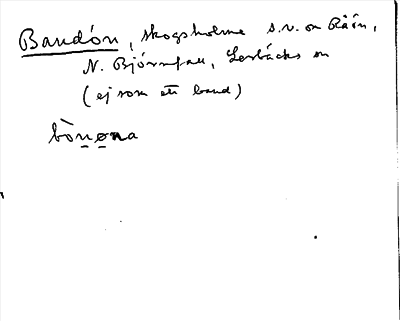 Bandön, skogsholme s.v. om Råön,
N. Björnfall, Lersbäcks
(ej som ett band)
bònǝna